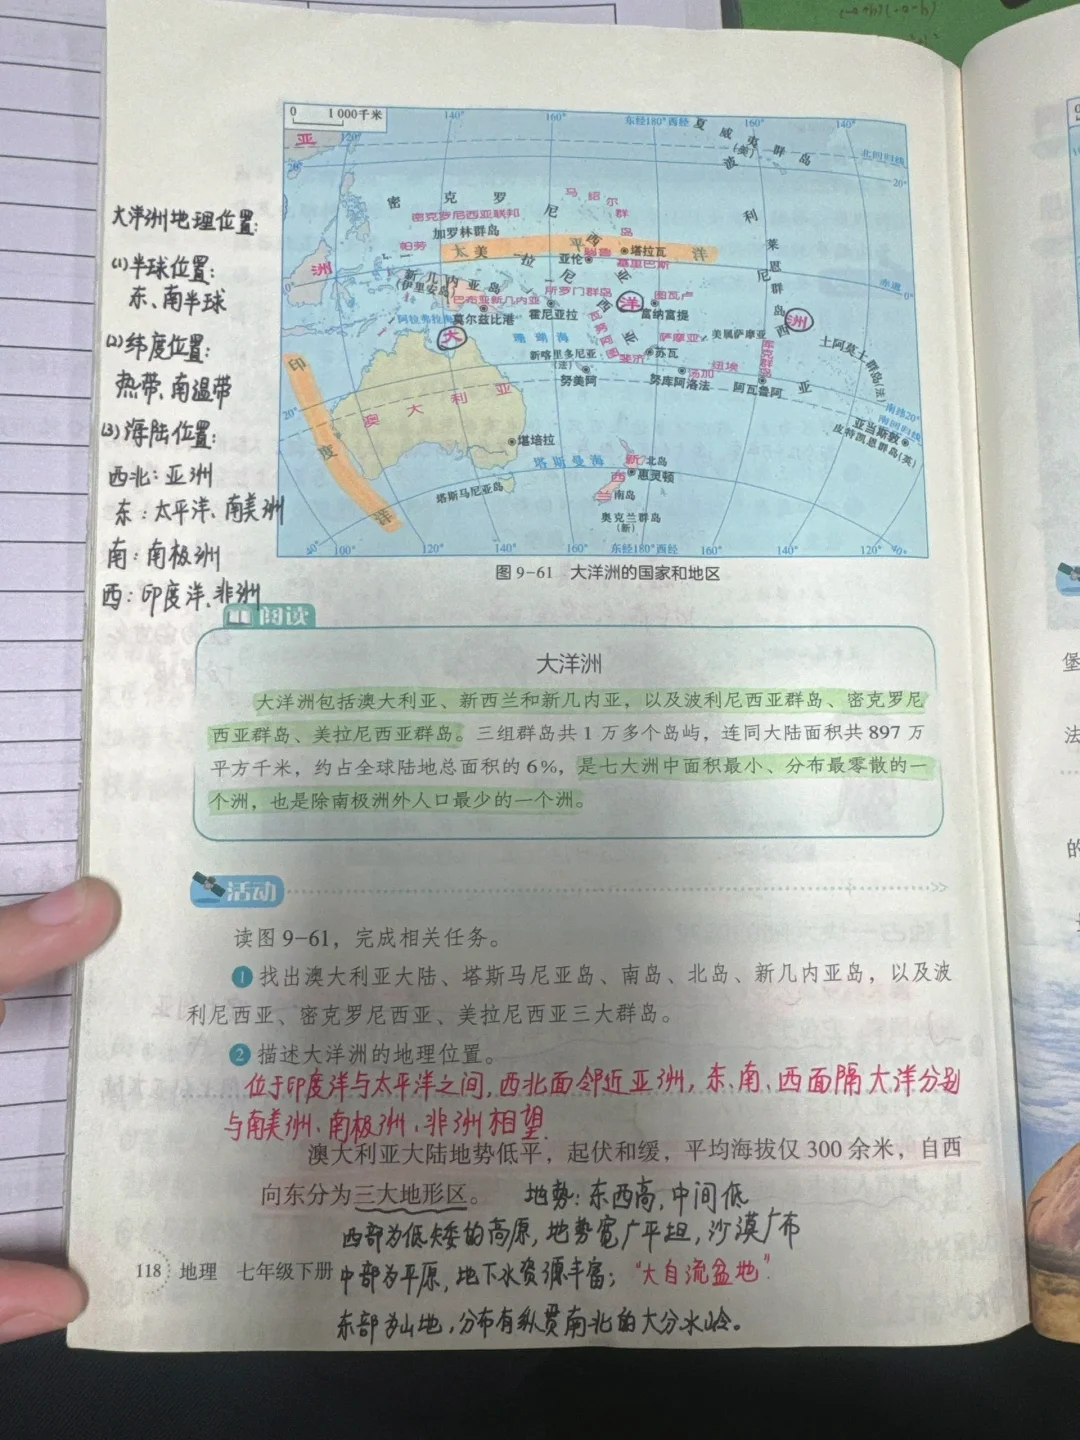 0 1 000千米
140°
160°
东经180°西经
160°
140°
夏威夷群岛
(美)
北回归线
20°
120°
亚
洲
密克罗尼西亚
密克罗尼西亚联邦
马绍尔群岛
加罗林群岛
帕劳
太平洋
美拉尼西亚
瑙鲁
亚伦
塔拉瓦
基里巴斯
波利尼西亚
莱恩群岛
赤道
0°
新几内亚岛
(伊里安岛)
巴布亚新几内亚
所罗门群岛
图瓦卢
阿拉弗拉海
莫尔兹比港
霍尼亚拉
富纳富提
大
洋
洲
珊瑚海
瓦努阿图
萨摩亚
美属萨摩亚
库克群岛
土阿莫土群岛(法)
新喀里多尼亚
(法)
斐济
苏瓦
汤加
纽埃
努美阿
努库阿洛法
阿瓦鲁阿
南纬20°
南回归线
亚当斯敦
皮特凯恩群岛(英)
印度洋
20°
澳大利亚
堪培拉
塔斯曼海
塔斯马尼亚岛
新西兰
北岛
惠灵顿
南岛
奥克兰群岛
(新)
40°
100°
120°
140°
160°
东经180°西经
160°
140°
120°
40°
图 9-61 大洋洲的国家和地区
大洋洲地理位置:
(1)半球位置:
东、南半球
(2)纬度位置:
热带、南温带
(3)海陆位置:
西北:亚洲
东:太平洋、南美洲
南:南极洲
西:印度洋、非洲
阅读
大洋洲
大洋洲包括澳大利亚、新西兰和新几内亚，以及波利尼西亚群岛、密克罗尼
西亚群岛、美拉尼西亚群岛。三组群岛共1万多个岛屿，连同大陆面积共897万
平方千米，约占全球陆地总面积的6%，是七大洲中面积最小、分布最零散的一
个洲，也是除南极洲外人口最少的一个洲。
活动
读图9-61，完成相关任务。
1 找出澳大利亚大陆、塔斯马尼亚岛、南岛、北岛、新几内亚岛，以及波
利尼西亚、密克罗尼西亚、美拉尼西亚三大群岛。
2 描述大洋洲的地理位置。
位于印度洋与太平洋之间,西北面邻近亚洲,东、南、西面隔大洋分别
与南美洲、南极洲、非洲相望.
澳大利亚大陆地势低平，起伏和缓，平均海拔仅300余米，自西
向东分为三大地形区。 地势:东西高,中间低
西部为低矮的高原,地势宽广平坦,沙漠广布
中部为平原,地下水资源丰富;“大自流盆地”
东部为山地,分布有纵贯南北的大分水岭。
118 地理 七年级下册
堡
法
的